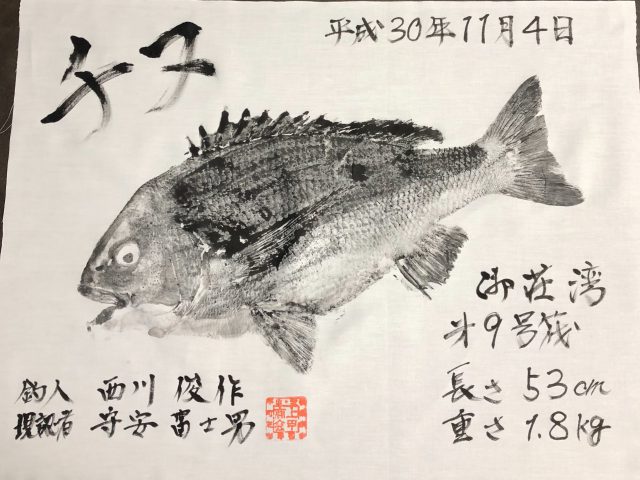 チヌ
平成30年11月4日
御荘湾
米9号筏
長さ 53cm
重さ 1.8kg
釣人 西川 俊作
現認者 守安 富士男